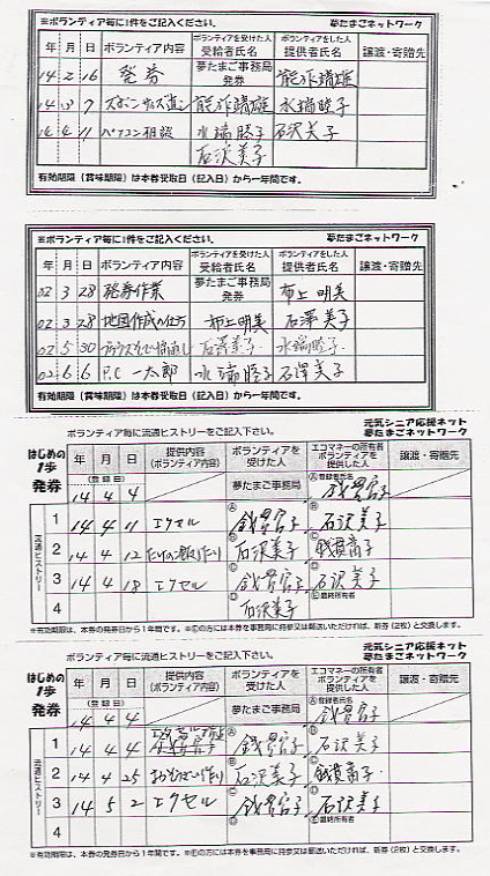 ※ボランティア毎に1件をご記入ください。 夢たまごネットワーク
年 月 日 ボランティア内容 ボランティアを受けた人 受給者氏名 ボランティアをした人 提供者氏名 譲渡・寄贈先
14 2 16 発券 夢たまご事務局 発券
14 3 7 水端睦子
14 4 11 パソコン相談 水端睦子 石沢美子
石沢美子
有効期限(賞味期限)は本券受取日(記入日)から一年間です。
※ボランティア毎に1件をご記入ください。 夢たまごネットワーク
年 月 日 ボランティア内容 ボランティアを受けた人 受給者氏名 ボランティアをした人 提供者氏名 譲渡・寄贈先
02 3 28 発券作業 夢たまご事務局 発券 布上明美
02 3 28 地図作成の仕方 布上明美 石澤美子
02 5 30 石澤美子 水端睦子
02 6 6 P.C 一太郎 水端睦子 石澤美子
有効期限(賞味期限)は本券受取日(記入日)から一年間です。
元気シニア応援ネット
ボランティア毎に流通ヒストリーをご記入下さい。 夢たまごネットワーク
はじめの1歩 発券 年 月 日 提供内容 (ボランティア内容) ボランティアを受けた人 エコマネーの所有者 ボランティアを提供した人 譲渡・寄贈先
(登録日) 14 4 4 夢たまご事務局 Ⓐ登録者氏名
流通ヒストリー
1 14 4 11 エクセル Ⓐ Ⓑ 石沢美子
2 14 4 12 Ⓑ 石沢美子 Ⓒ
3 14 4 18 エクセル Ⓒ Ⓓ 石沢美子
4 Ⓓ 石沢美子 Ⓔ最終所有者
※有効期限は、本券の発券日から1年間です。※Ⓔの方には本券を事務局に持参又は郵送いただければ、新券(2枚)と交換します。
元気シニア応援ネット
ボランティア毎に流通ヒストリーをご記入下さい。 夢たまごネットワーク
はじめの1歩 発券 年 月 日 提供内容 (ボランティア内容) ボランティアを受けた人 エコマネーの所有者 ボランティアを提供した人 譲渡・寄贈先
(登録日) 14 4 4 夢たまご事務局 Ⓐ登録者氏名
流通ヒストリー
1 14 4 4 Ⓐ Ⓑ 石沢美子
2 14 4 25 Ⓑ 石沢美子 Ⓒ
3 14 5 2 エクセル Ⓒ Ⓓ 石沢美子
4 Ⓓ Ⓔ最終所有者
※有効期限は、本券の発券日から1年間です。※Ⓔの方には本券を事務局に持参又は郵送いただければ、新券(2枚)と交換します。